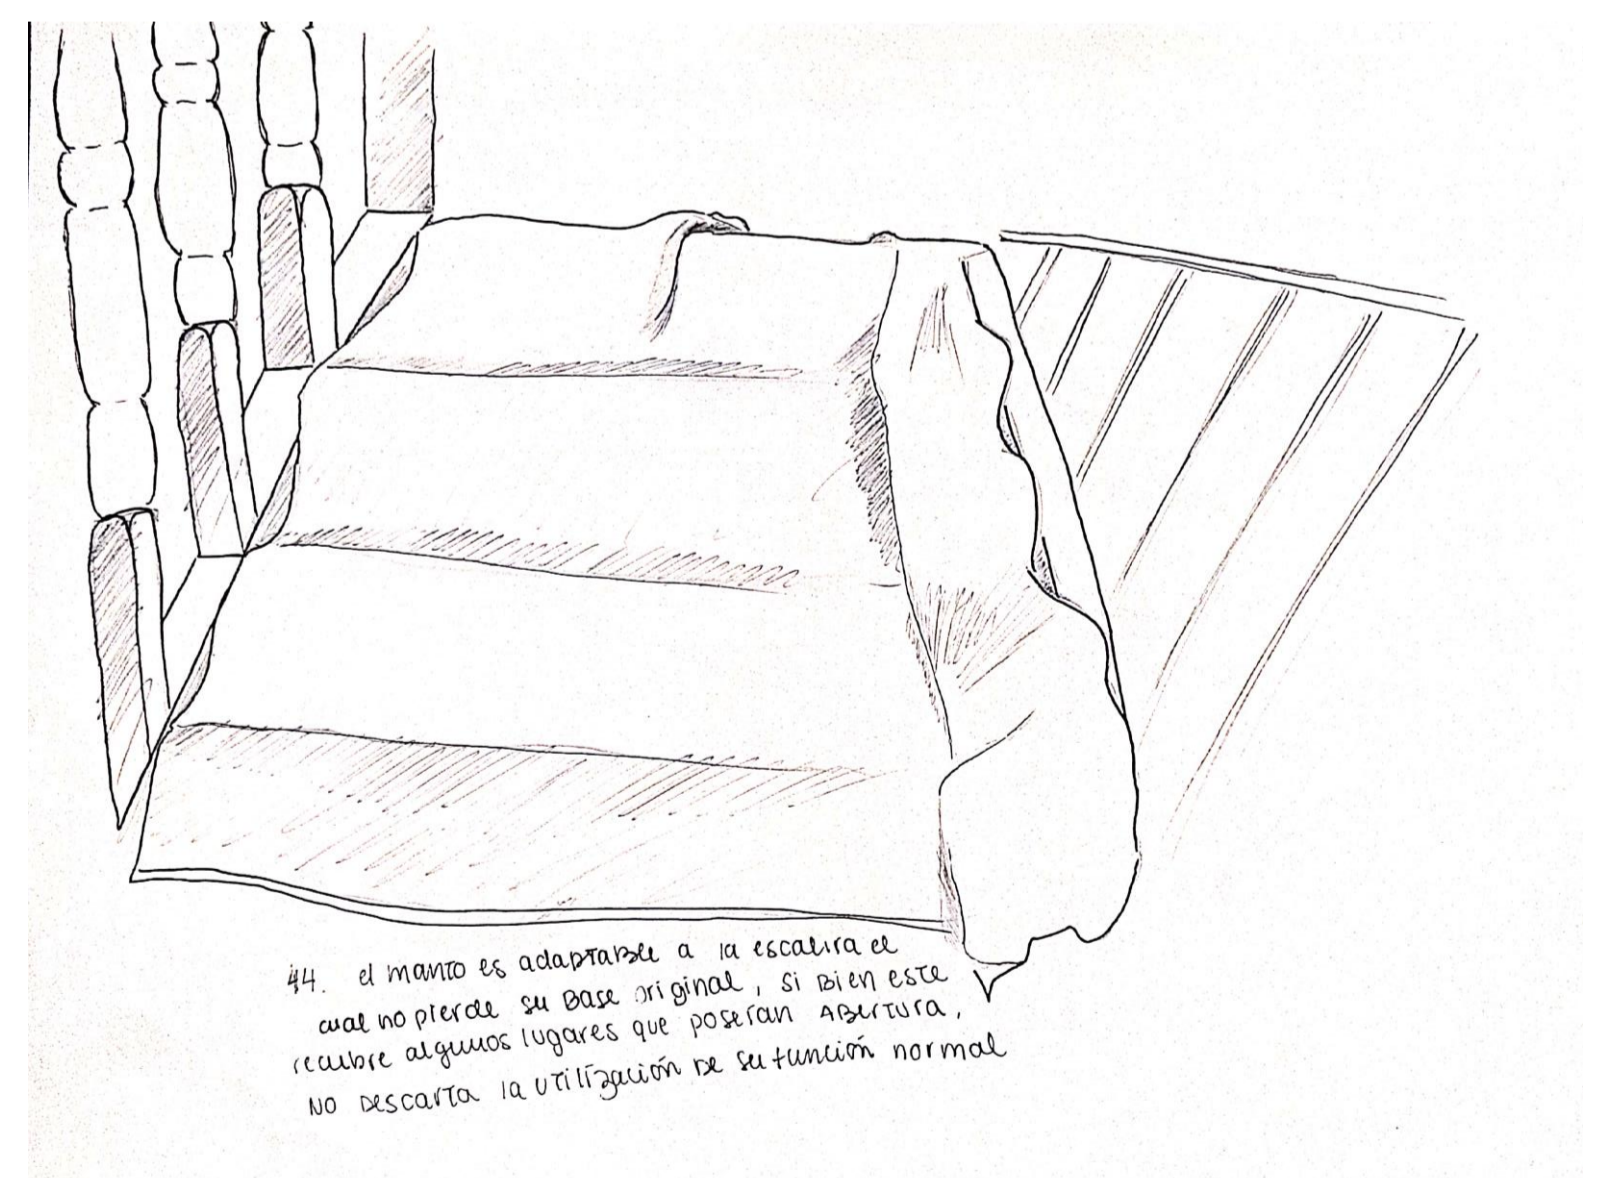 44. el manto es adaptable a la escalera el
cual no pierde su base original, si bien este
recubre algunos lugares que poseían abertura,
no descarta la utilización de su función normal